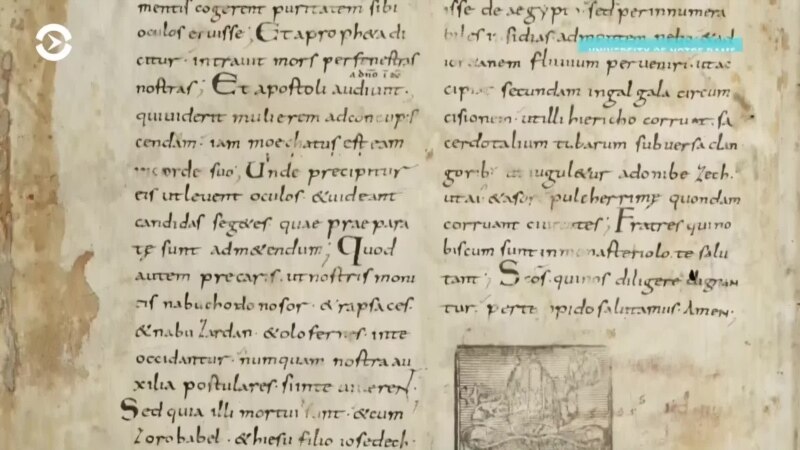 mentis cogerent puritatem sibi
oculos eruisse; Et apropheta di
citur, intravit mors per fenestras
nostras; Et apostoli audiunt
qui viderit mulierem ad concupis
cendam. iam moechatus est eam
corde suo; Unde precipitur
eis ut levent oculos. & videant
candidas seg&es quae praepara
te sunt ad m&endum; Quod
autem precaris. ut nostris moni
tis nabuchodonosor. & rapsaces.
& nabuzardan. & olofernes. in te
occidantur. numquam nostra au
xilia postulares. si in te viverent.
Sed quia illi mortui sunt. & cum
Zorobabel. & hiesu filio iosedech.
isse de aegypti. sed per innumera
UNIVERSITY OF NOTRE DAME
iordanem fluvium perveniri. ut ac
cipias secundam in galgala circum
cisionem. ut illi hiericho corruat. sa
cerdotalium tubarum subversa clan
goribus
adonibezech.
ut ai & asor pulcherrime quondam
corruant civitates; Fratres qui no
biscum sunt in monasteriolo. te salu
tant; Scos. qui nos diligere dignan
tur. per te
salutamus. Amen.